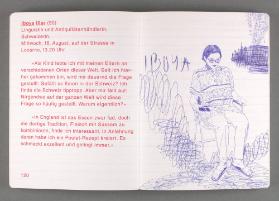 Ibüya Ular (65)
Linguistin und Antiquitätenhändlerin,
Schweizerin.
Mittwoch, 18. August, auf der Strasse in
Locarno, 13.20 Uhr.
«Als Kind lebte ich mit meinen Eltern an
verschiedenen Orten dieser Welt. Seit ich hier-
her gekommen bin, wird mir dauernd die Frage
gestellt: Gefällt es Ihnen in der Schweiz? Ich
finde die Schweiz tipptopp. Aber nur fällt auf:
Nirgendwo auf der ganzen Welt wird diese
Frage so häufig gestellt. Warum eigentlich?»
«In England ist das Essen zwar fad, doch
die dortige Tradition, Fleisch mit Süssem zu
kombinieren, finde ich interessant. In Anlehnung
daran habe ich ein Poulet-Rezept kreiert. Es
schmeckt exzellent und gelingt immer.»
120
IBÜYA